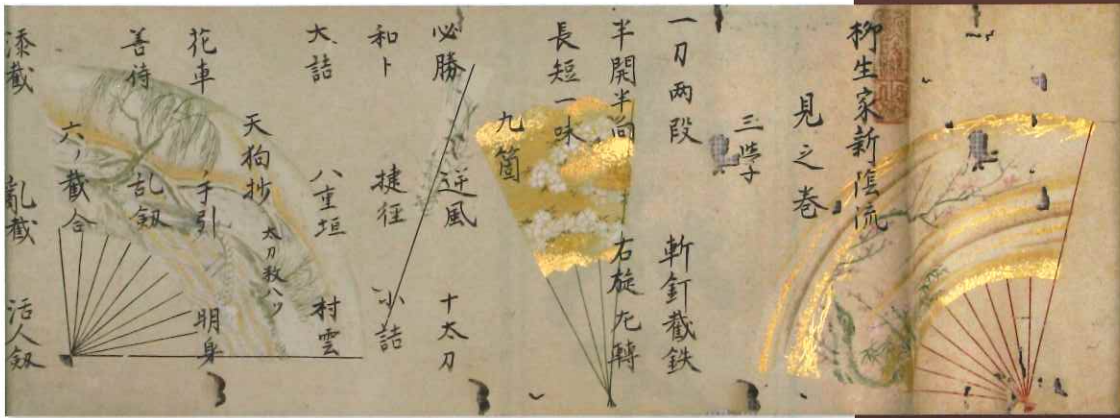 柳生家新陰流
見之巻
三學
一刀两段 斬釘截鉄
半開半向 右旋左轉
長短一味
九箇
必勝 逆風 十太刀
和卜 捷径 小詰
大詰 八重垣 村雲
天狗抄 太刀数八ツ
花車 手引 明身
善待 乱釼
六ノ截合
添截 亂截 活人釼